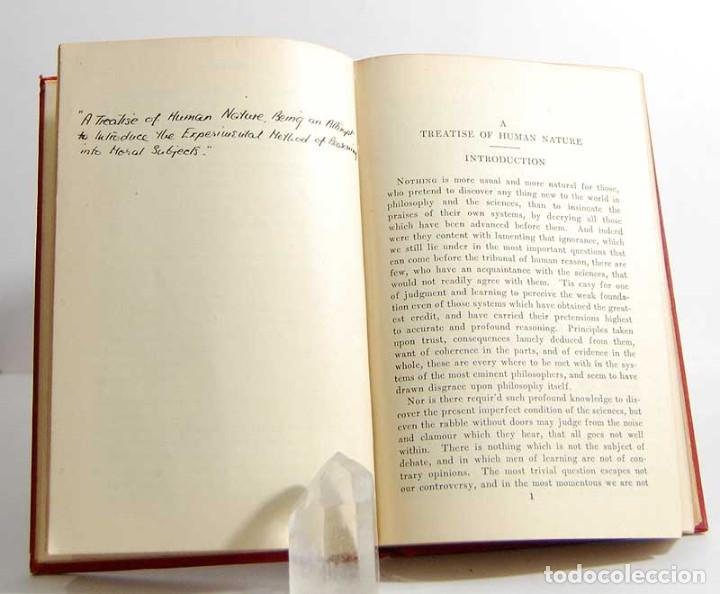 "A Treatise of Human Nature, Being an Attempt
to Introduce the Experimental Method of Reasoning
into Moral Subjects."
A
TREATISE OF HUMAN NATURE
INTRODUCTION
NOTHING is more usual and more natural for those,
who pretend to discover any thing new to the world in
philosophy and the sciences, than to insinuate the
praises of their own systems, by decrying all those
which have been advanced before them. And indeed
were they content with lamenting that ignorance, which
we still lie under in the most important questions that
can come before the tribunal of human reason, there are
few, who have an acquaintance with the sciences, that
would not readily agree with them. 'Tis easy for one
of judgment and learning to perceive the weak founda-
tion even of those systems which have obtained the great-
est credit, and have carried their pretensions highest
to accurate and profound reasoning. Principles taken
upon trust, consequences lamely deduced from them,
want of coherence in the parts, and of evidence in the
whole, these are every where to be met with in the sys-
tems of the most eminent philosophers, and seem to have
drawn disgrace upon philosophy itself.
Nor is there requir'd such profound knowledge to dis-
cover the present imperfect condition of the sciences, but
even the rabble without doors may judge from the noise
and clamour which they hear, that all goes not well
within. There is nothing which is not the subject of
debate, and in which men of learning are not of con-
trary opinions. The most trivial question escapes not
our controversy, and in the most momentous we are not
1
todocoleccion